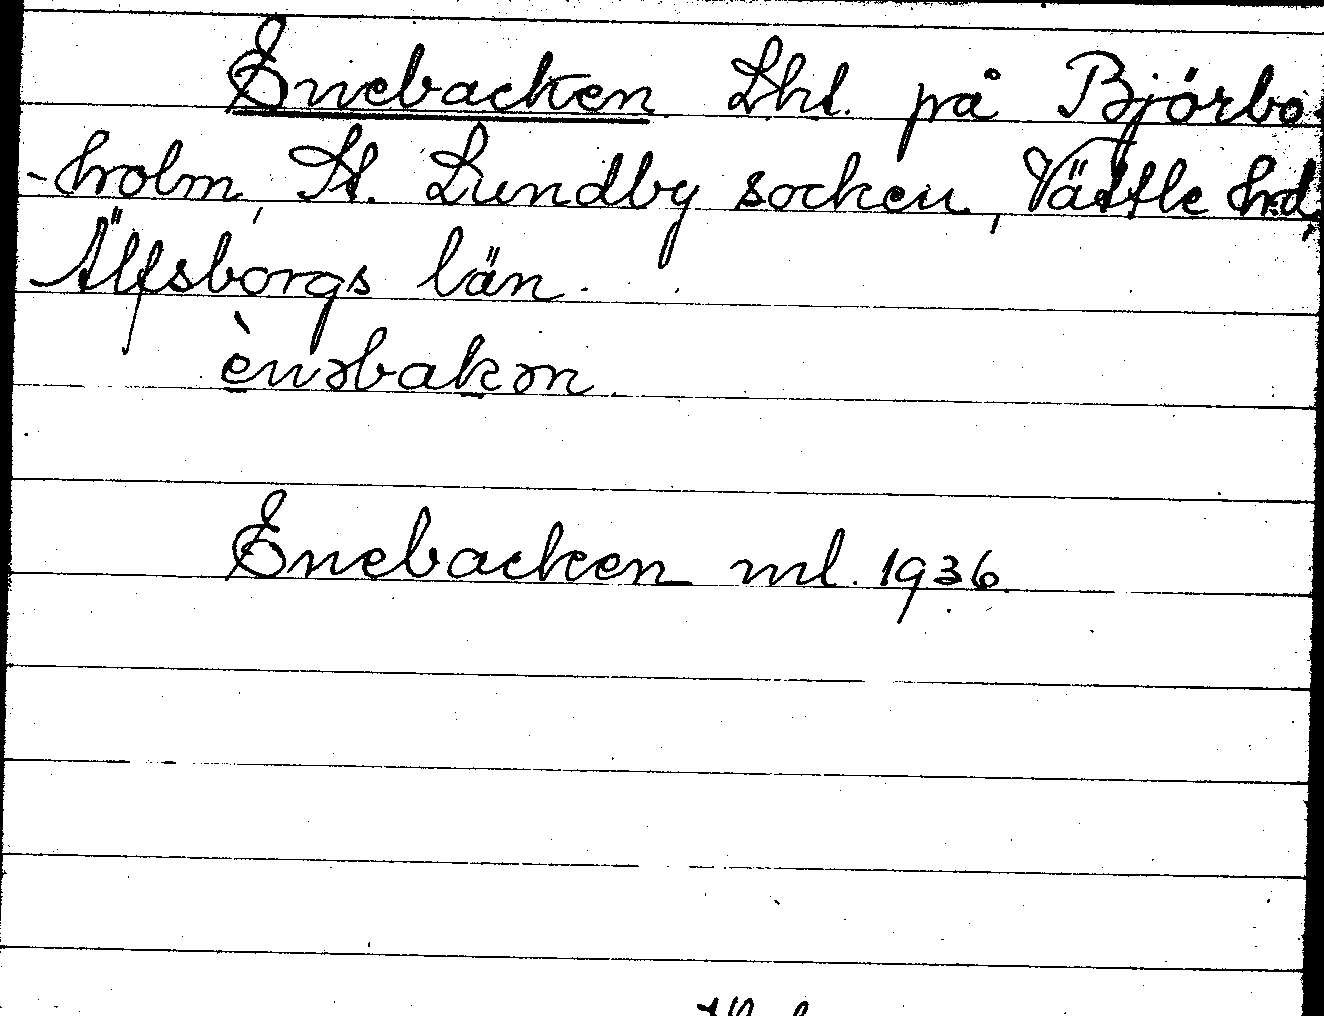 Enebacken Lht. på Björbo-
-holm, St. Lundby socken, Vättle hd,
Älfsborgs län.
ènəbakən
Enebacken ml. 1936